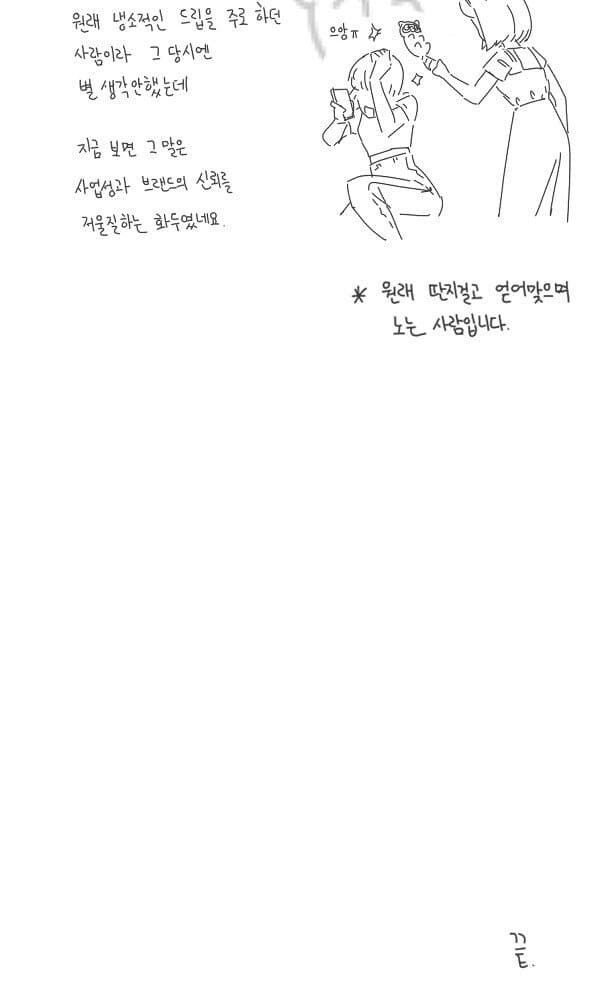 원래 냉소적인 드립을 주로 하던
사람이라 그 당시엔
별 생각안했는데
지금 보면 그 말은
사업성과 브랜드의 신뢰를
저울질하는 화두였네요.
으앙ㅠ
* 원래 딴지걸고 얻어맞으며
노는 사람입니다.
끝.